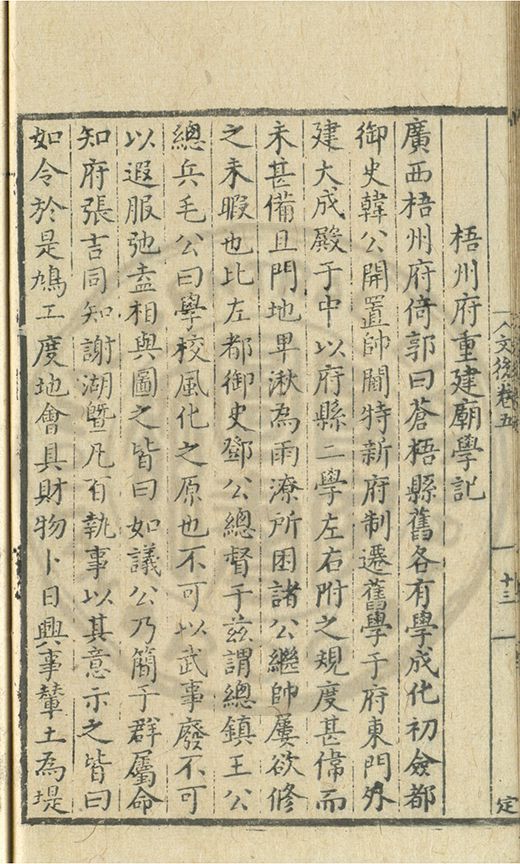 文後卷五
十三
定
梧州府重建廟學記
廣西梧州府倚郭曰蒼梧縣舊各有學成化初僉都
御史韓公開置帥閫特新府制遷舊學于府東門外
建大成殿于中以府縣二學左右附之規度甚偉而
未甚備且門地卑湫為雨潦所困諸公繼帥屢欲修
之未暇也比左都御史鄧公總督于茲謂總鎮王公
總兵毛公曰學校風化之原也不可以武事廢不可
以遐服弛盍相與圖之皆曰如議公乃簡于群屬命
知府張吉同知謝湖暨凡百執事以其意示之皆曰
如令於是鳩工度地會具財物卜日興事輦土為堤